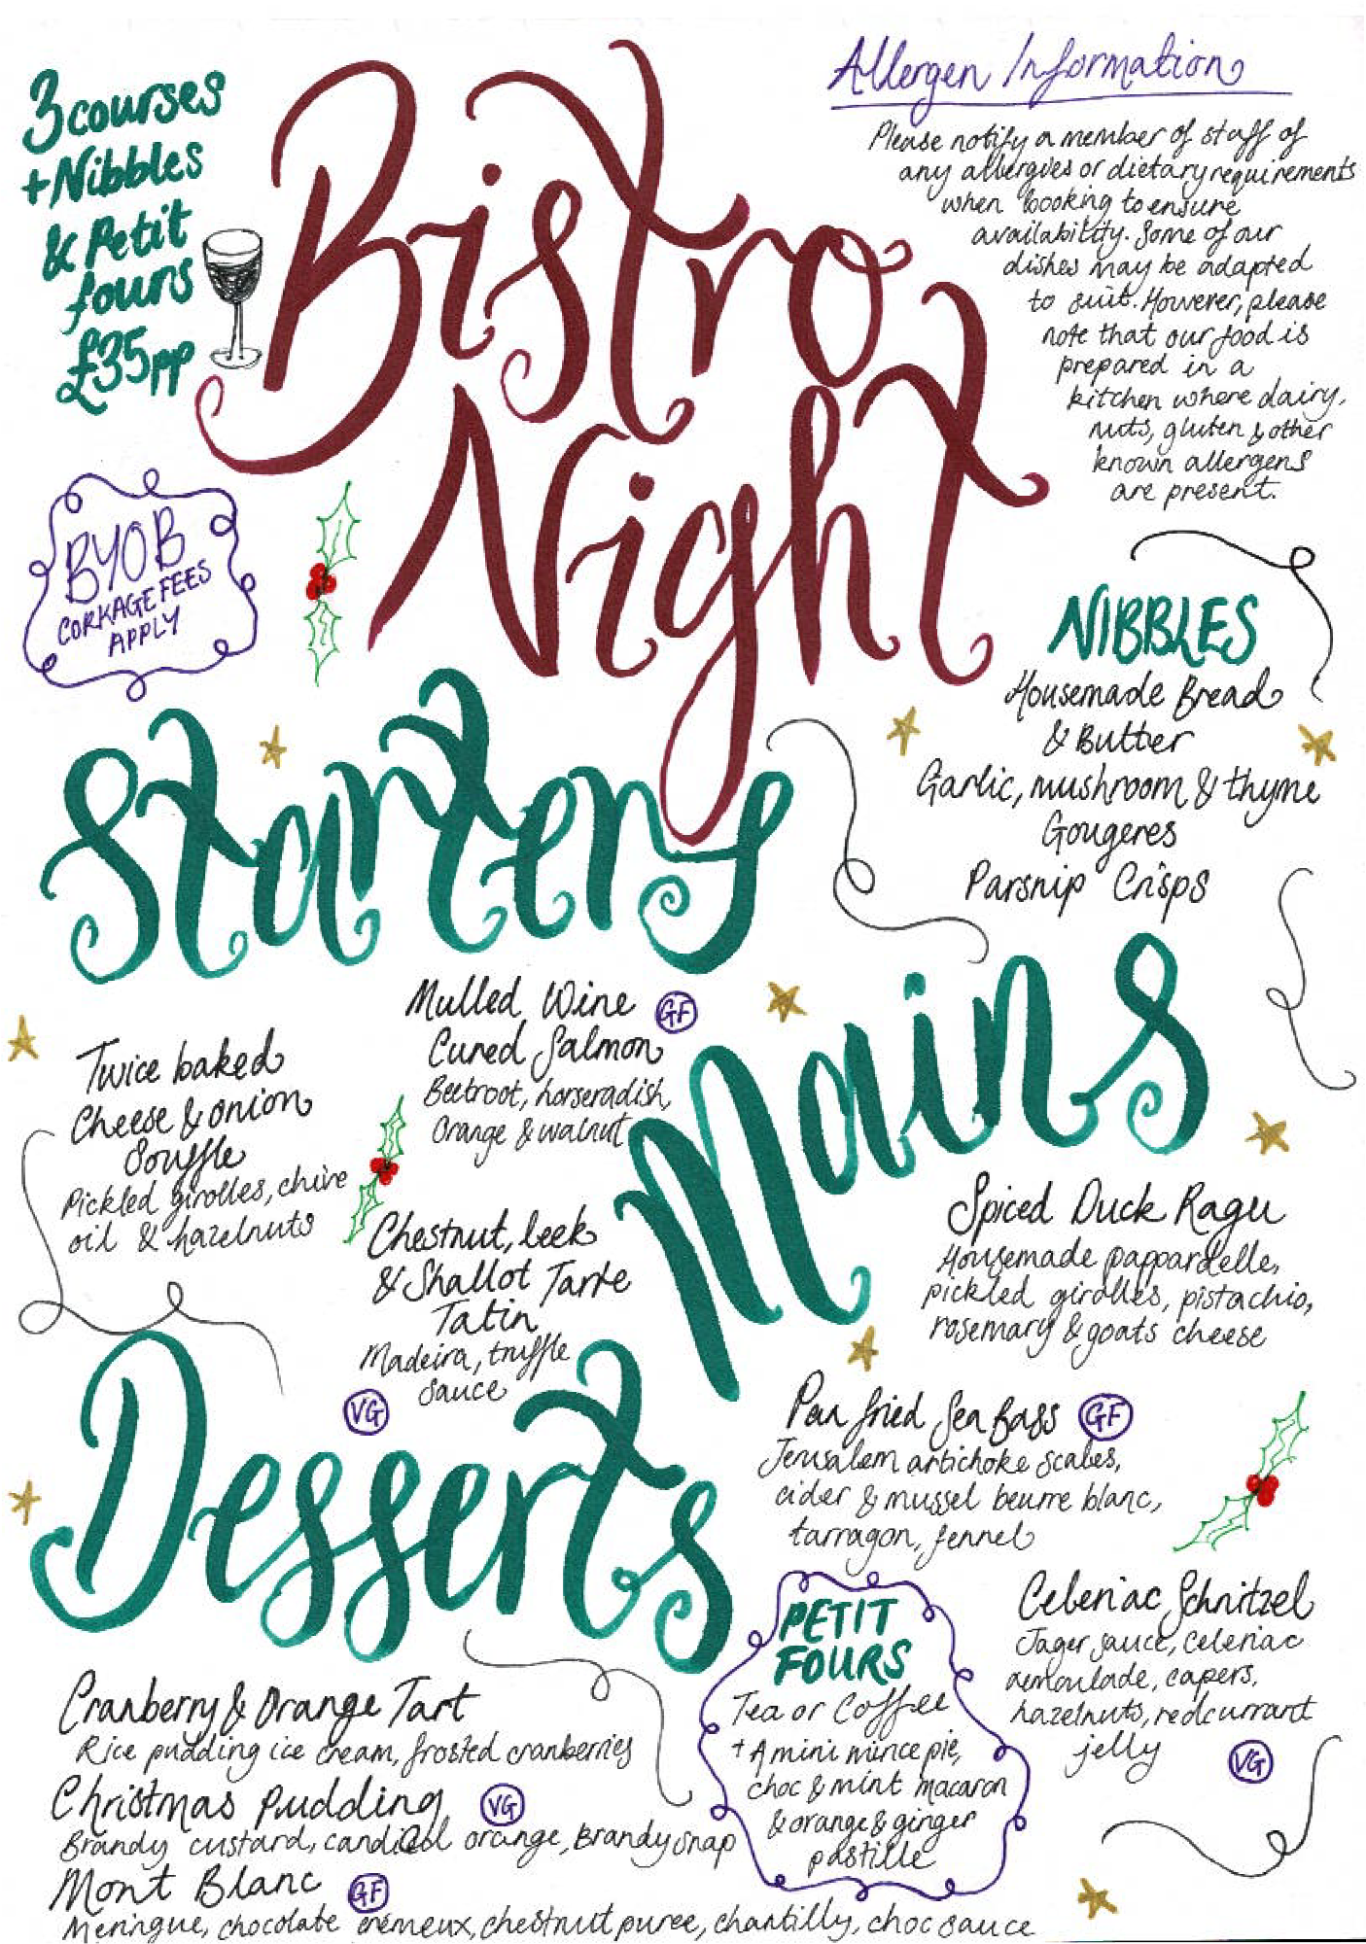 3 courses
+ Nibbles
& Petit
fours
£35pp
Bistro
Night
Allergen Information
Please notify a member of staff of
any allergies or dietary requirements
when booking to ensure
availability. Some of our
dishes may be adapted
to suit. However, please
note that our food is
prepared in a
kitchen where dairy,
nuts, gluten & other
known allergens
are present.
BYOB
CORKAGE FEES
APPLY
NIBBLES
Housemade Bread
& Butter
Garlic, mushroom & thyme
Gougeres
Parsnip Crisps
Starters
Twice baked
Cheese & onion
Souffle
Pickled girolles, chive
oil & hazelnuts
Mulled Wine GF
Cured Salmon
Beetroot, horseradish,
Orange & walnut
Chestnut, leek
& Shallot Tarte
Tatin
Madeira, truffle
sauce
VG
Mains
Spiced Duck Ragu
Housemade pappardelle,
pickled girolles, pistachio,
rosemary & goats cheese
Pan fried Sea Bass GF
Jerusalem artichoke scales,
cider & mussel beurre blanc,
tarragon, fennel
Celeriac Schnitzel
Jager sauce, celeriac
remoulade, capers,
hazelnuts, redcurrant
jelly VG
Desserts
Cranberry & Orange Tart
Rice pudding ice cream, frosted cranberries
Christmas Pudding VG
Brandy custard, candied orange, Brandy snap
Mont Blanc GF
Meringue, chocolate cremeux, chestnut puree, chantilly, choc sauce
PETIT
FOURS
Tea or Coffee
+ A mini mince pie,
choc & mint macaron
& orange & ginger
pastille